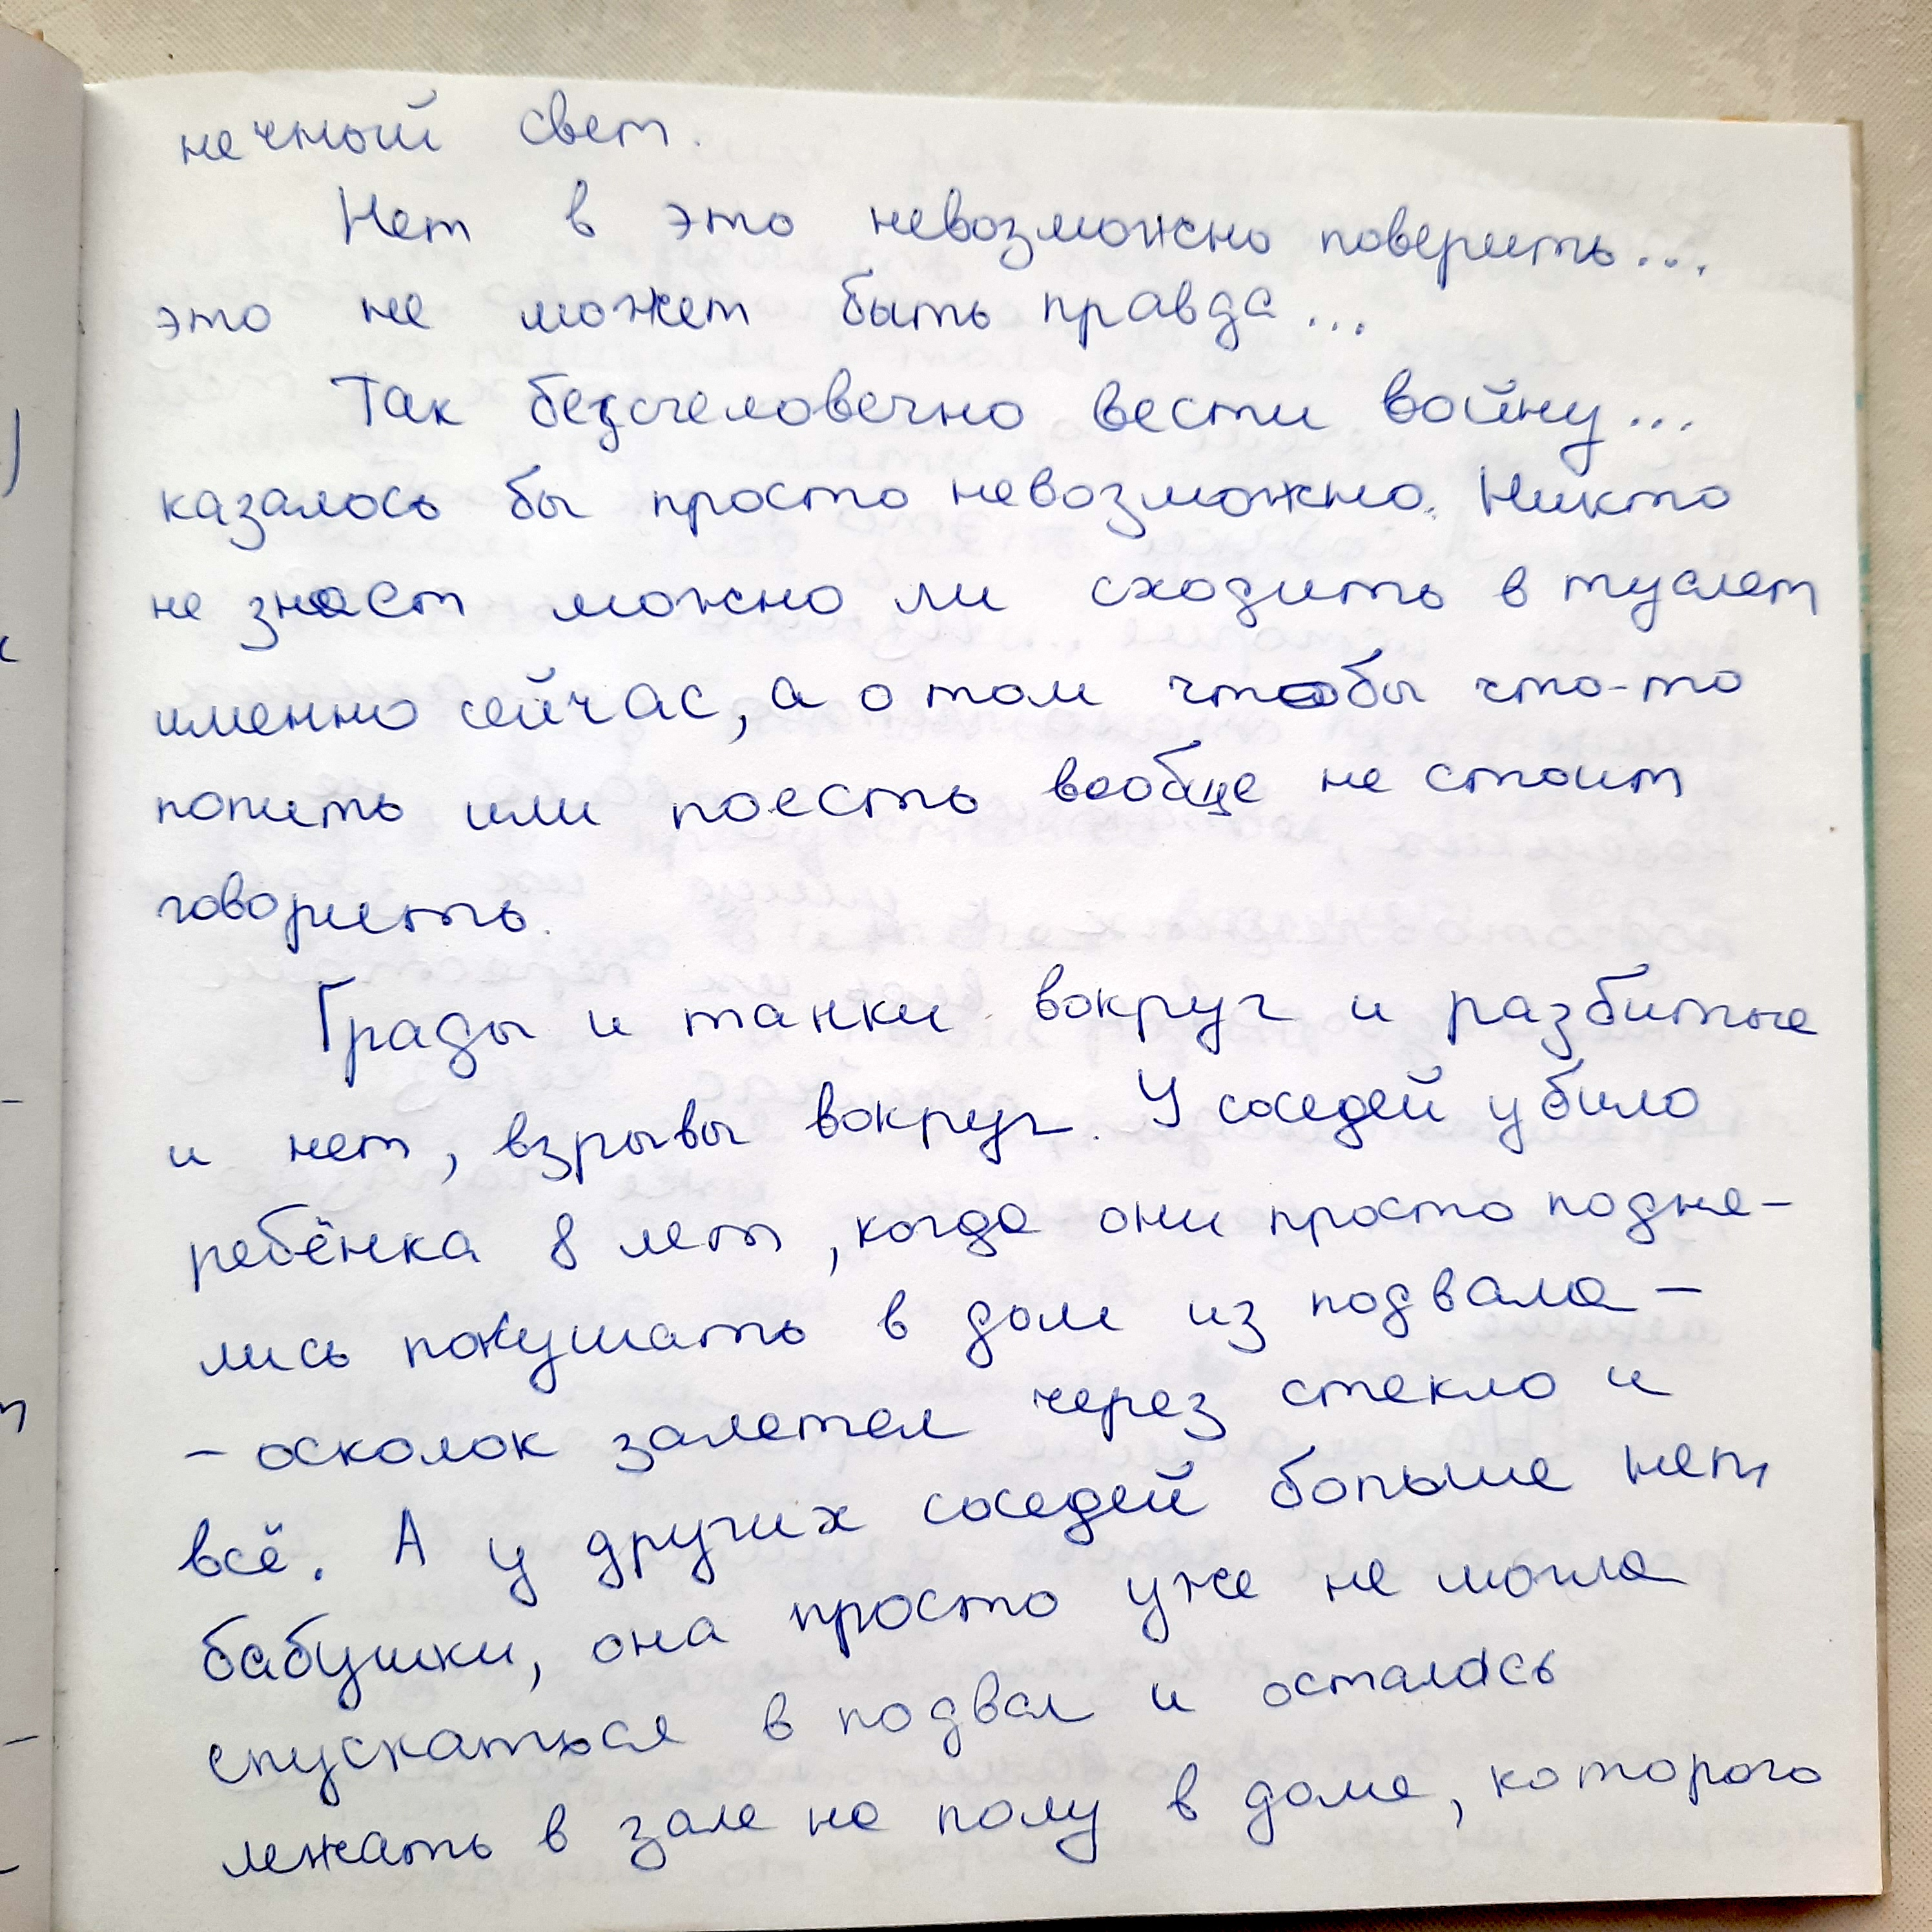 нечный свет.
Нет в это невозможно поверить...
это не может быть правда...
Так бесчеловечно вести войну...
казалось бы просто невозможно. Никто
не знает можно ли сходить в туалет
именно сейчас, а о том чтобы что-то
попить или поесть вообще не стоит
говорить.
Грады и танки вокруг и разбитые
и нет, взрывы вокруг. У соседей убило
ребёнка 8 лет, когда они просто подня-
лись покушать в дом из подвала -
- осколок залетел через стекло и
всё. А у других соседей больше нет
бабушки, она просто уже не могла
спускаться в подвал и осталась
лежать в зале на полу в доме, которого